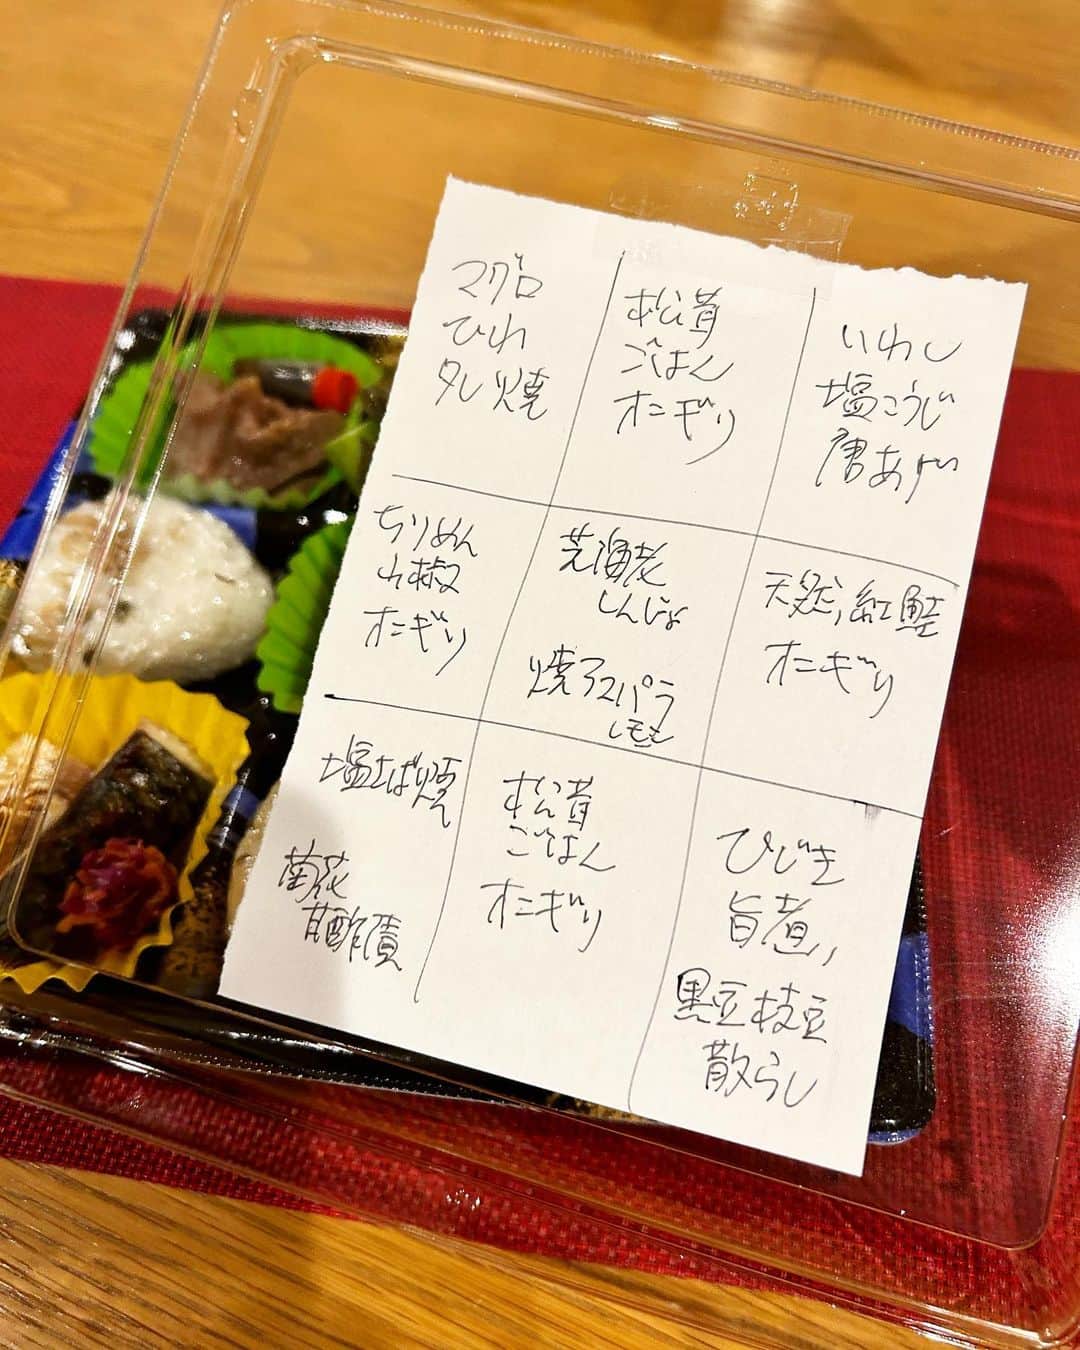 マグロ
ひれ
タレ焼
松茸
ごはん
オニギリ
いわし
塩こうじ
唐あげ
ちりめん
山椒
オニギリ
芝海老
しんじょ
焼アスパラ
レモン
天然紅鮭
オニギリ
塩さば焼
菊花
甘酢漬
松茸
ごはん
オニギリ
ひじき
旨煮、
黒豆枝豆
散らし